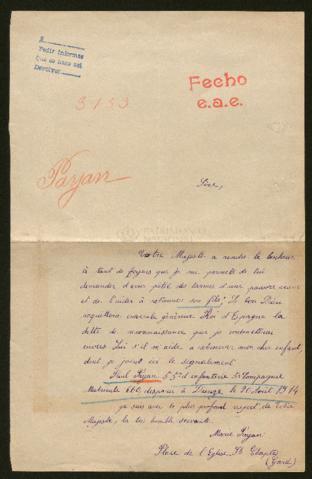 Pedir informes
que se hace así
Devolver
Fecho
e.a.e.
3153
Payan
Sire,
Votre Majesté a rendu le bonheur
à tant de foyers que je me permets de lui
demander d'avoir pitié des larmes d'une pauvre
et de l'aider à retrouver son fils; Le bon Dieu
acquittera envers le généreux Roi d'Espagne la
dette de reconnaissance que je contracterai
envers Lui s'il m'aide à retrouver mon cher enfant,
dont je joins ici le signalement
Paul Payan d'infanterie 5e Compagnie
Matricule 660 disparu à Dieuze le 20 Août 1914
je suis avec le plus profond respect de Votre
Majesté, la très humble servante.
Marie Payan.
Place de l'Eglise, St Chaptes
(Gard)